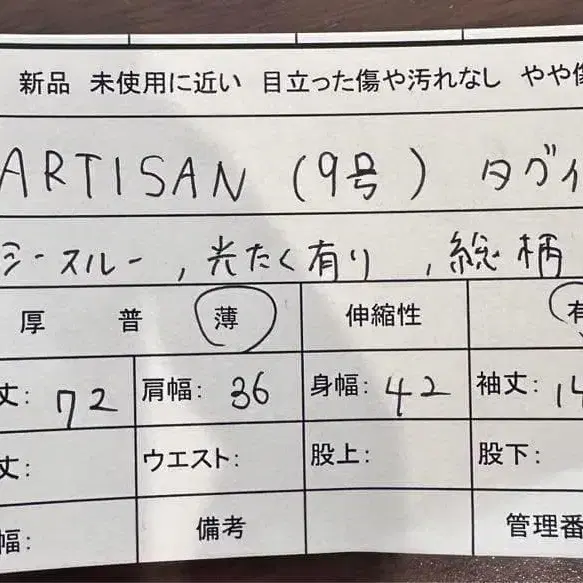 新品 未使用に近い 目立った傷や汚れなし やや傷
ARTISAN (9号) タグイ
シースルー, 光たく有り, 総柄
厚 普 薄 伸縮性 有
丈: 72 肩幅: 36 身幅: 42 袖丈: 14
丈: ウエスト: 股上: 股下:
幅: 備考 管理番